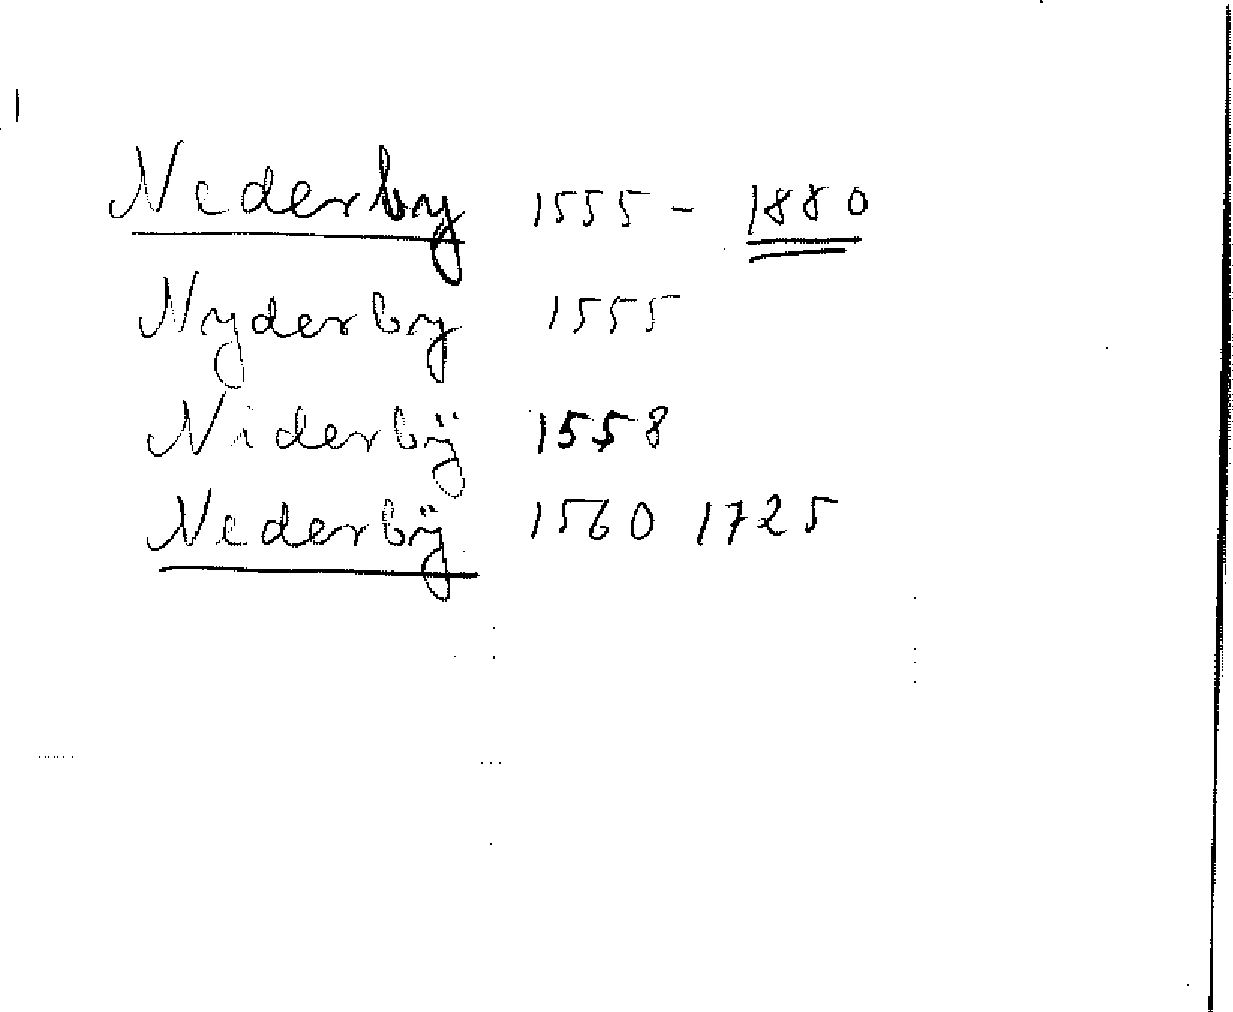 Nederby 1555 - 1880
Nyderby 1555
Niderbÿ 1558
Nederbÿ 1560 1725